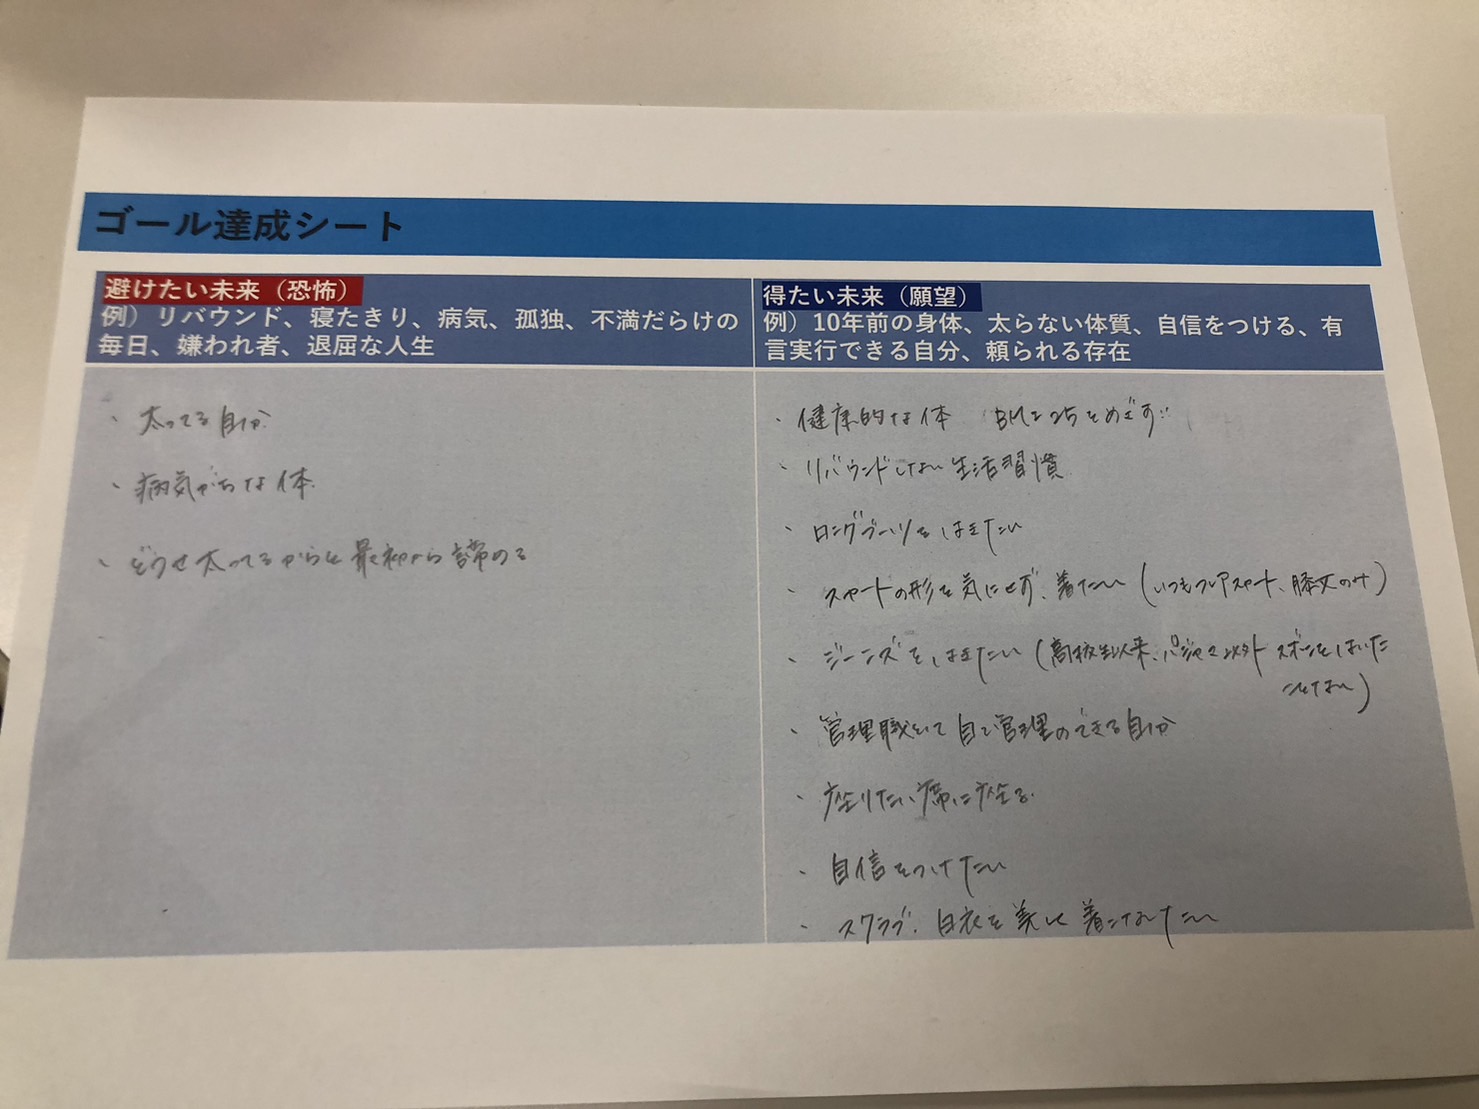 ゴール達成シート
避けたい未来（恐怖）
例）リバウンド、寝たきり、病気、孤独、不満だらけの
毎日、嫌われ者、退屈な人生
・太ってる自分
・病気がちな体
・どうせ太ってるからと最初から諦める
得たい未来（願望）
例）10年前の身体、太らない体質、自信をつける、有
言実行できる自分、頼られる存在
・健康的な体 BMI 25をめざす!!
・リバウンドしない生活習慣
・ロングブーツをはきたい
・スカートの形を気にせず、着たい（いつもフレアスカート、膝丈のみ）
・ジーンズをはきたい（高校生以来、パジャマ以外ズボンをはいた
ことない）
・管理職として自己管理のできる自分
・座りたい席に座る
・自信をつけたい
・スクラブ、白衣を美しく着こなしたい